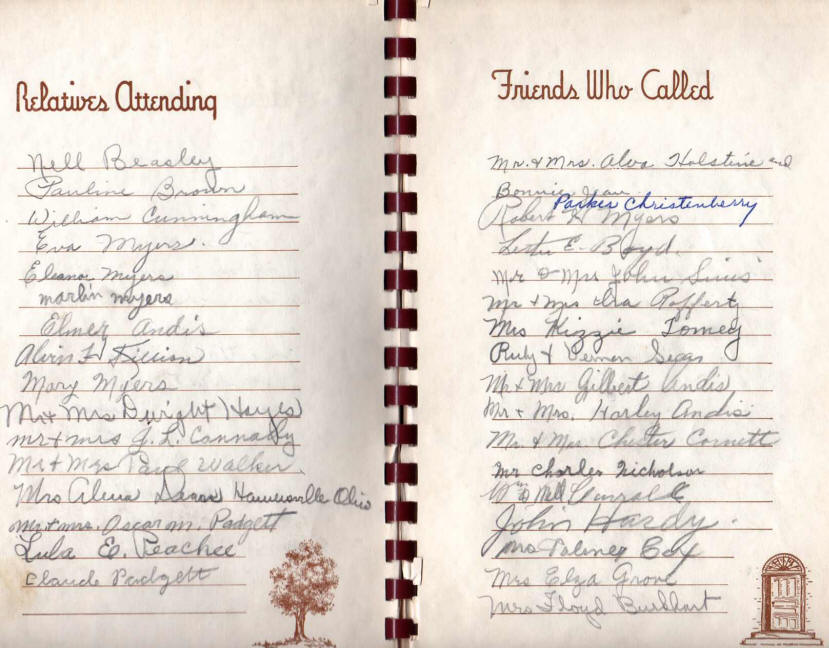 Relatives Attending
Nell Beasley
Pauline Brown
William Cunningham
Eva Myers.
Eleanor Myers
marlin myers
Elmer Andis
Alvin F. Killion
Mary Myers
Mr & Mrs Dwight Hayes
mr & mrs G. L. Cannady
Mr & Mrs Paul Walker.
Mrs Hamersville Ohio
Mr & mrs. Oscar M. Padgett
Lula E. Peachee
Claude Padgett
Friends Who Called
Mr. & Mrs. Alva Holstine and
Bonnie Jean
Parker Christenberry
Robert H Myers
Lester E. Boyd.
Mr & Mrs John Sims
Mr & Mrs Ira Rafferty
Mrs Kizzie Tomey
Ruby & Vernon Segar
Mr & Mrs Gilbert Andis
Mr & Mrs. Harley Andis
Mr. & Mrs. Chester Cornett
Mr Charles Nicholson
Nell
John Hardy.
Mrs Palmer Cox
Mrs Elza Grove
Mrs Floyd Burkhart